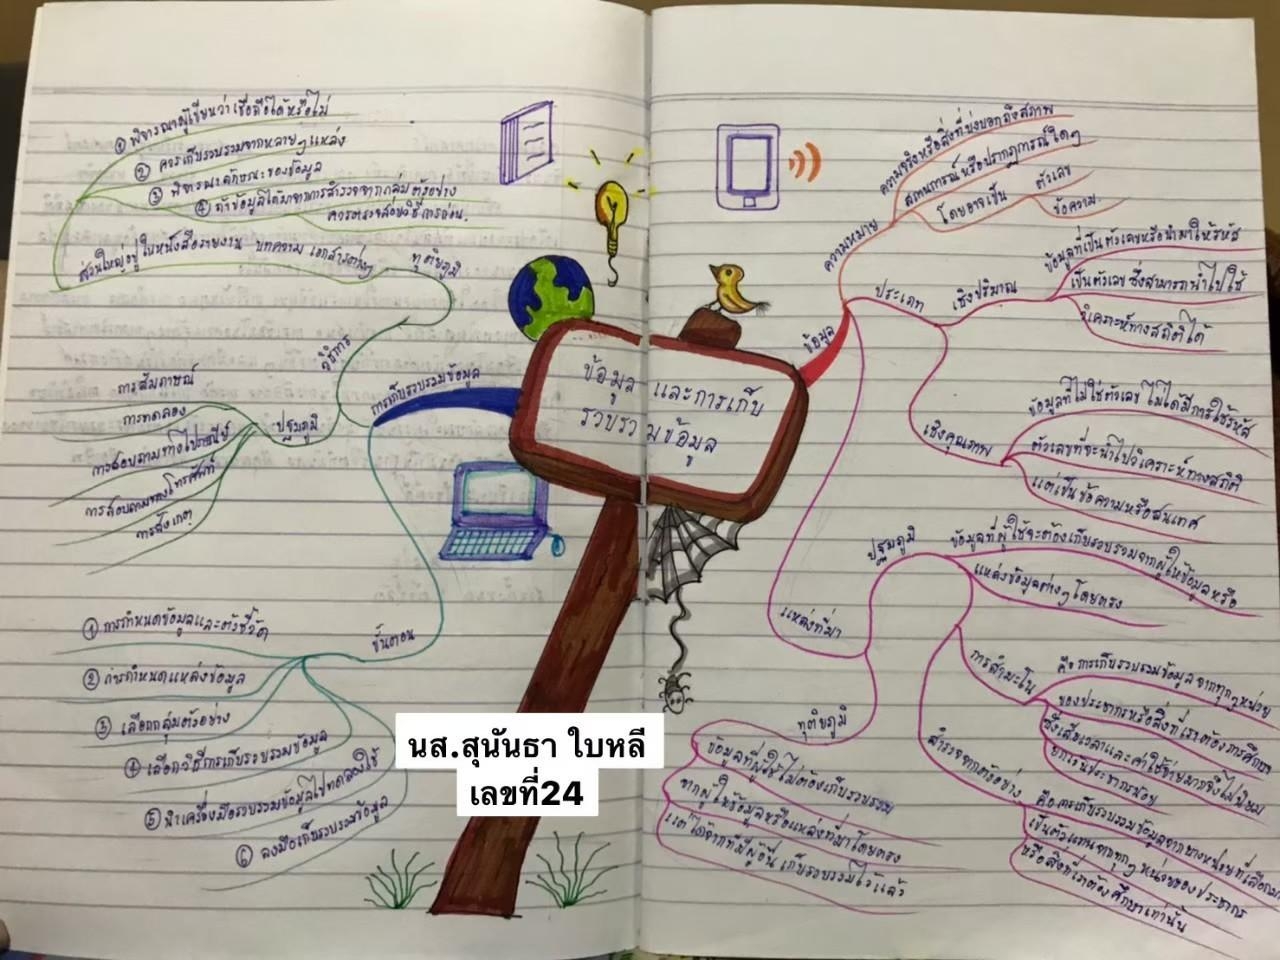 ข้อมูล และการเก็บ
รวบรวมข้อมูล
ข้อมูล
ความหมาย
ความจริงหรือสิ่งที่บ่งบอกถึงสภาพ
สถานการณ์หรือปรากฏการณ์ใดๆ
โดยอาจเป็น
ตัวเลข
ข้อความ
ประเภท
เชิงปริมาณ
ข้อมูลที่เป็นตัวเลขหรือนำมาให้รหัส
เป็นตัวเลข ซึ่งสามารถนำไปใช้
วิเคราะห์ทางสถิติได้
เชิงคุณภาพ
ข้อมูลที่ไม่ใช่ตัวเลข ไม่ได้มีการใช้รหัส
ตัวเลขที่จะนำไปวิเคราะห์ทางสถิติ
แต่เป็นข้อความหรือสนเทศ
แหล่งที่มา
ปฐมภูมิ
ข้อมูลที่ผู้ใช้จะต้องเก็บรวบรวมจากผู้ให้ข้อมูลหรือ
แหล่งข้อมูลต่างๆโดยตรง
การสำมะโน
คือการเก็บรวบรวมข้อมูลจากทุกๆหน่วย
ของประชากรหรือสิ่งที่เราต้องการศึกษา
ซึ่งเสียเวลาและค่าใช้จ่ายมากจึงไม่นิยม
ยกเว้นประชากรน้อย
สำรวจจากตัวอย่าง
คือการเก็บรวบรวมข้อมูลจากบางหน่วยที่เลือกมา
เป็นตัวแทนจากทุกๆ หน่วยของประชากร
หรือสิ่งที่เราต้องศึกษาเท่านั้น
ทุติยภูมิ
ข้อมูลที่ผู้ใช้ไม่ต้องเก็บรวบรวม
จากผู้ให้ข้อมูลหรือแหล่งที่มาโดยตรง
แต่ได้จากที่มีผู้อื่นเก็บรวบรวมไว้แล้ว
การเก็บรวบรวมข้อมูล
วิธีการ
ทุติยภูมิ
ส่วนใหญ่อยู่ในหนังสือรายงาน บทความ เอกสารต่างๆ
① พิจารณาผู้เขียนว่าเชื่อถือได้หรือไม่
② ควรเก็บรวบรวมจากหลายๆแหล่ง
③ พิจารณะลักษณะของข้อมูล
④ ถ้าข้อมูลได้มาจากการสำรวจจากกลุ่มตัวอย่าง
ควรตรวจสอบวิธีการก่อน.
ปฐมภูมิ
การสัมภาษณ์
การทดลอง
การสอบถามทางไปรษณีย์
การสอบถามทางโทรศัพท์
การสังเกตุ
ขั้นตอน
① การกำหนดข้อมูลและตัวชี้วัด
② การกำหนดแหล่งข้อมูล
③ เลือกกลุ่มตัวอย่าง
④ เลือกวิธีการเก็บรวบรวมข้อมูล
⑤ นำเครื่องมือรวบรวมข้อมูลไปทดลองใช้
⑥ ลงมือเก็บรวบรวมข้อมูล
นส.สุนันธา ใบหลี
เลขที่24